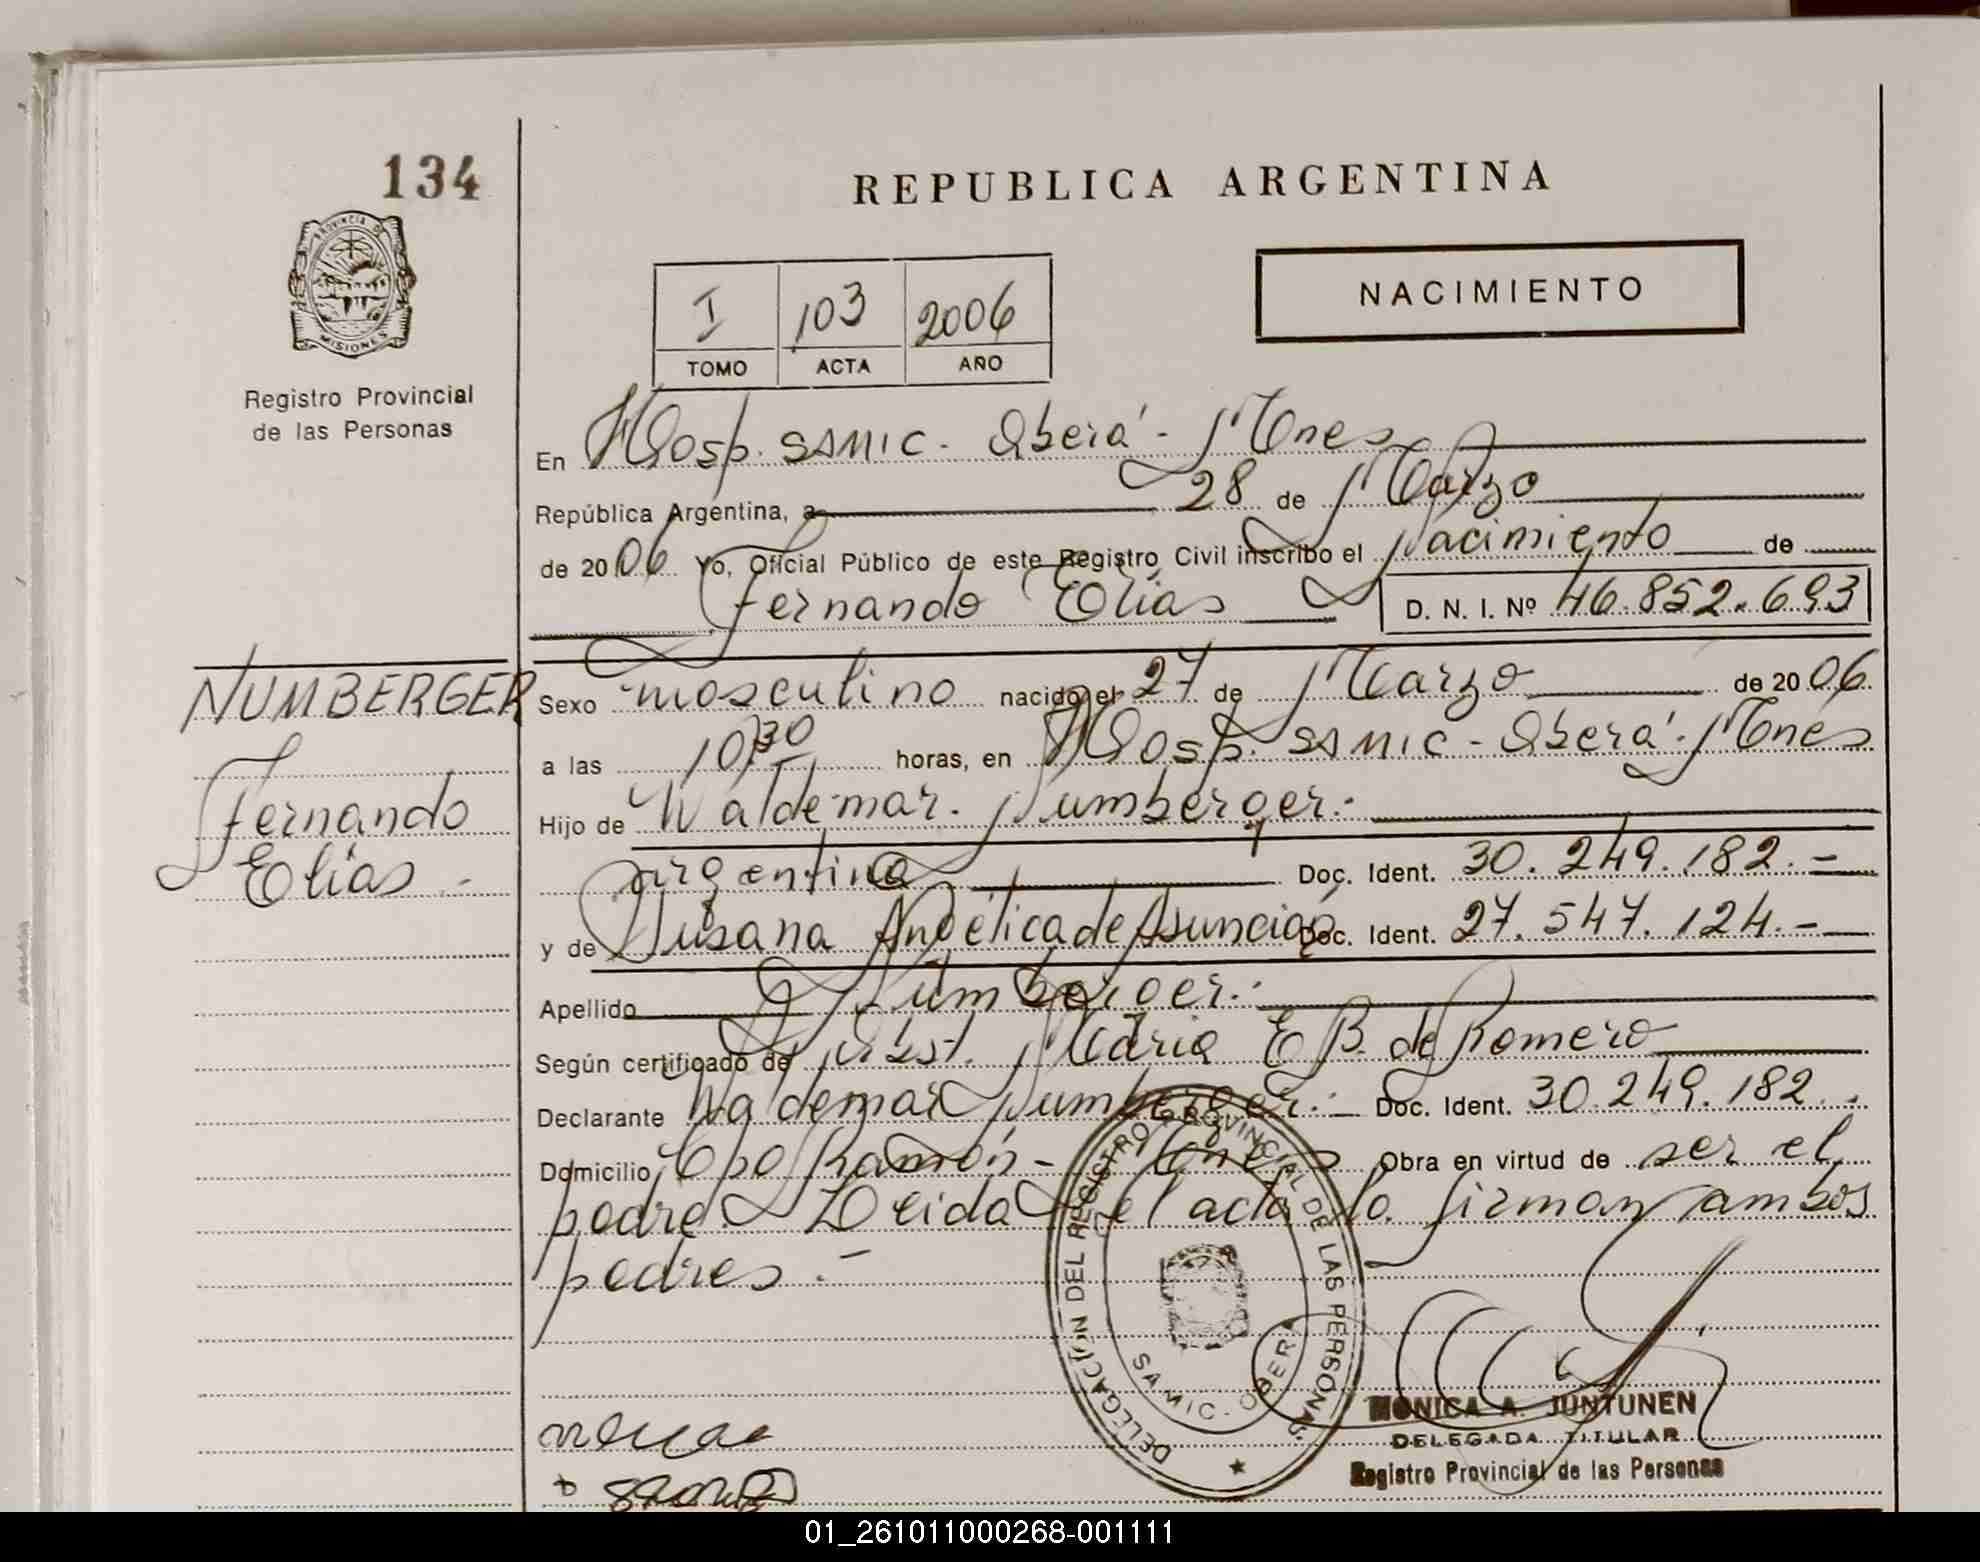 134
REPUBLICA ARGENTINA
PROVINCIA DE
MISIONES
Registro Provincial
de las Personas
I 103 2006
TOMO ACTA AÑO
NACIMIENTO
En Hosp. SAMIC - Oberá - Mnes
República Argentina, a 28 de Marzo
de 2006 Yo, Oficial Público de este Registro Civil inscribo el Nacimiento de
Fernando Elias D. N. I. Nº 46.852.693
NUMBERGER
Fernando
Elías -
Sexo masculino nacido el 27 de Marzo de 2006
a las 10,30 horas, en Hosp. SAMIC - Oberá - Mnes
Hijo de Waldemar Numberger.-
argentina Doc. Ident. 30.249.182.-
y de Susana Angélica de Asunción Doc. Ident. 27.547.124.-
Apellido Numberger.-
Según certificado de Obst. María E B. de Romero
Declarante Waldemar Numberger.- Doc. Ident. 30.249.182.
Domicilio Cpo Ramón - Mnes Obra en virtud de ser el
padre. Leida el acta la firman ambos
padres.-
DELEGACION DEL REGISTRO PROVINCIAL DE LAS PERSONAS
SAMIC - OBERA
MONICA A. JUNTUNEN
DELEGADA TITULAR
Registro Provincial de las Personas
01_261011000268-001111